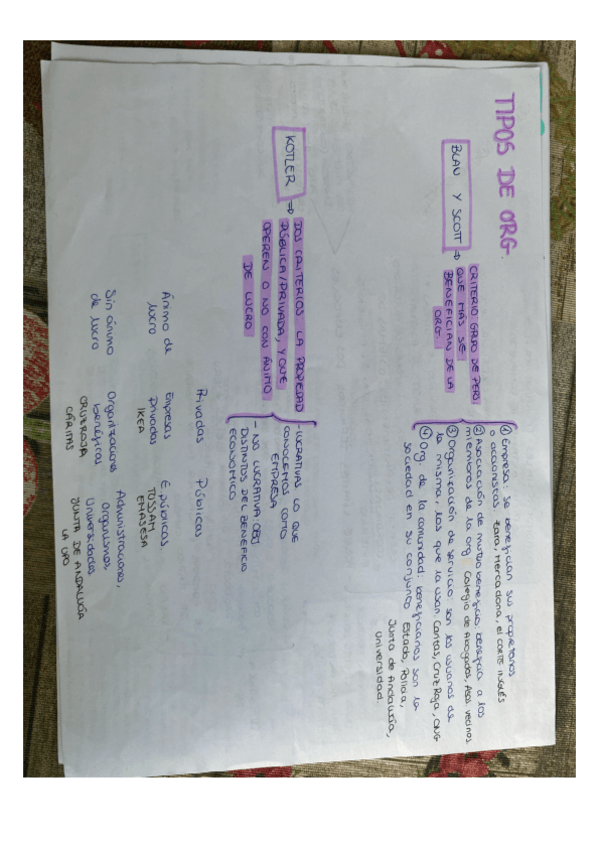 TIPOS DE ORG.
BLAU Y SCOTT ⇒ CRITERIO GRUPO DE PERS
QUE MÁS SE
BENEFICIAN DE LA
ORG.
① Empresa: se benefician sus propietarios
o accionistas Zara, Mercadona, el CORTE INGLÉS
② Asociación de mutuo beneficio: beneficia a los
miembros de la org. Colegio de Abogados, Asoc. vecinos
③ Organización de servicio: son los usuarios de
la misma, los que la usan. Caritas, Cruz Roja, ONG
④ Org. de la comunidad: beneficiarios son la
sociedad en su conjunto. Estado, Policía,
Junta de Andalucía,
Universidad.
KOTLER ⇒ DOS CRITERIOS LA PROPIEDAD
PÚBLICA/PRIVADA, Y QUE
OPEREN O NO CON ÁNIMO
DE LUCRO
- LUCRATIVAS LO QUE
CONOCEMOS COMO
EMPRESA
- NO LUCRATIVA OBJ
DISTINTOS DEL BENEFICIO
ECONÓMICO
Privadas Públicas
Ánimo de lucro
Empresas Privadas
IKEA
E. públicas
TUSSAM
EMASESA
Sin ánimo de lucro
Organizaciones benéficas
CRUZ ROJA
CÁRITAS
Administraciones,
Organismos
Universidades
JUNTA DE ANDALUCÍA
LA UPO